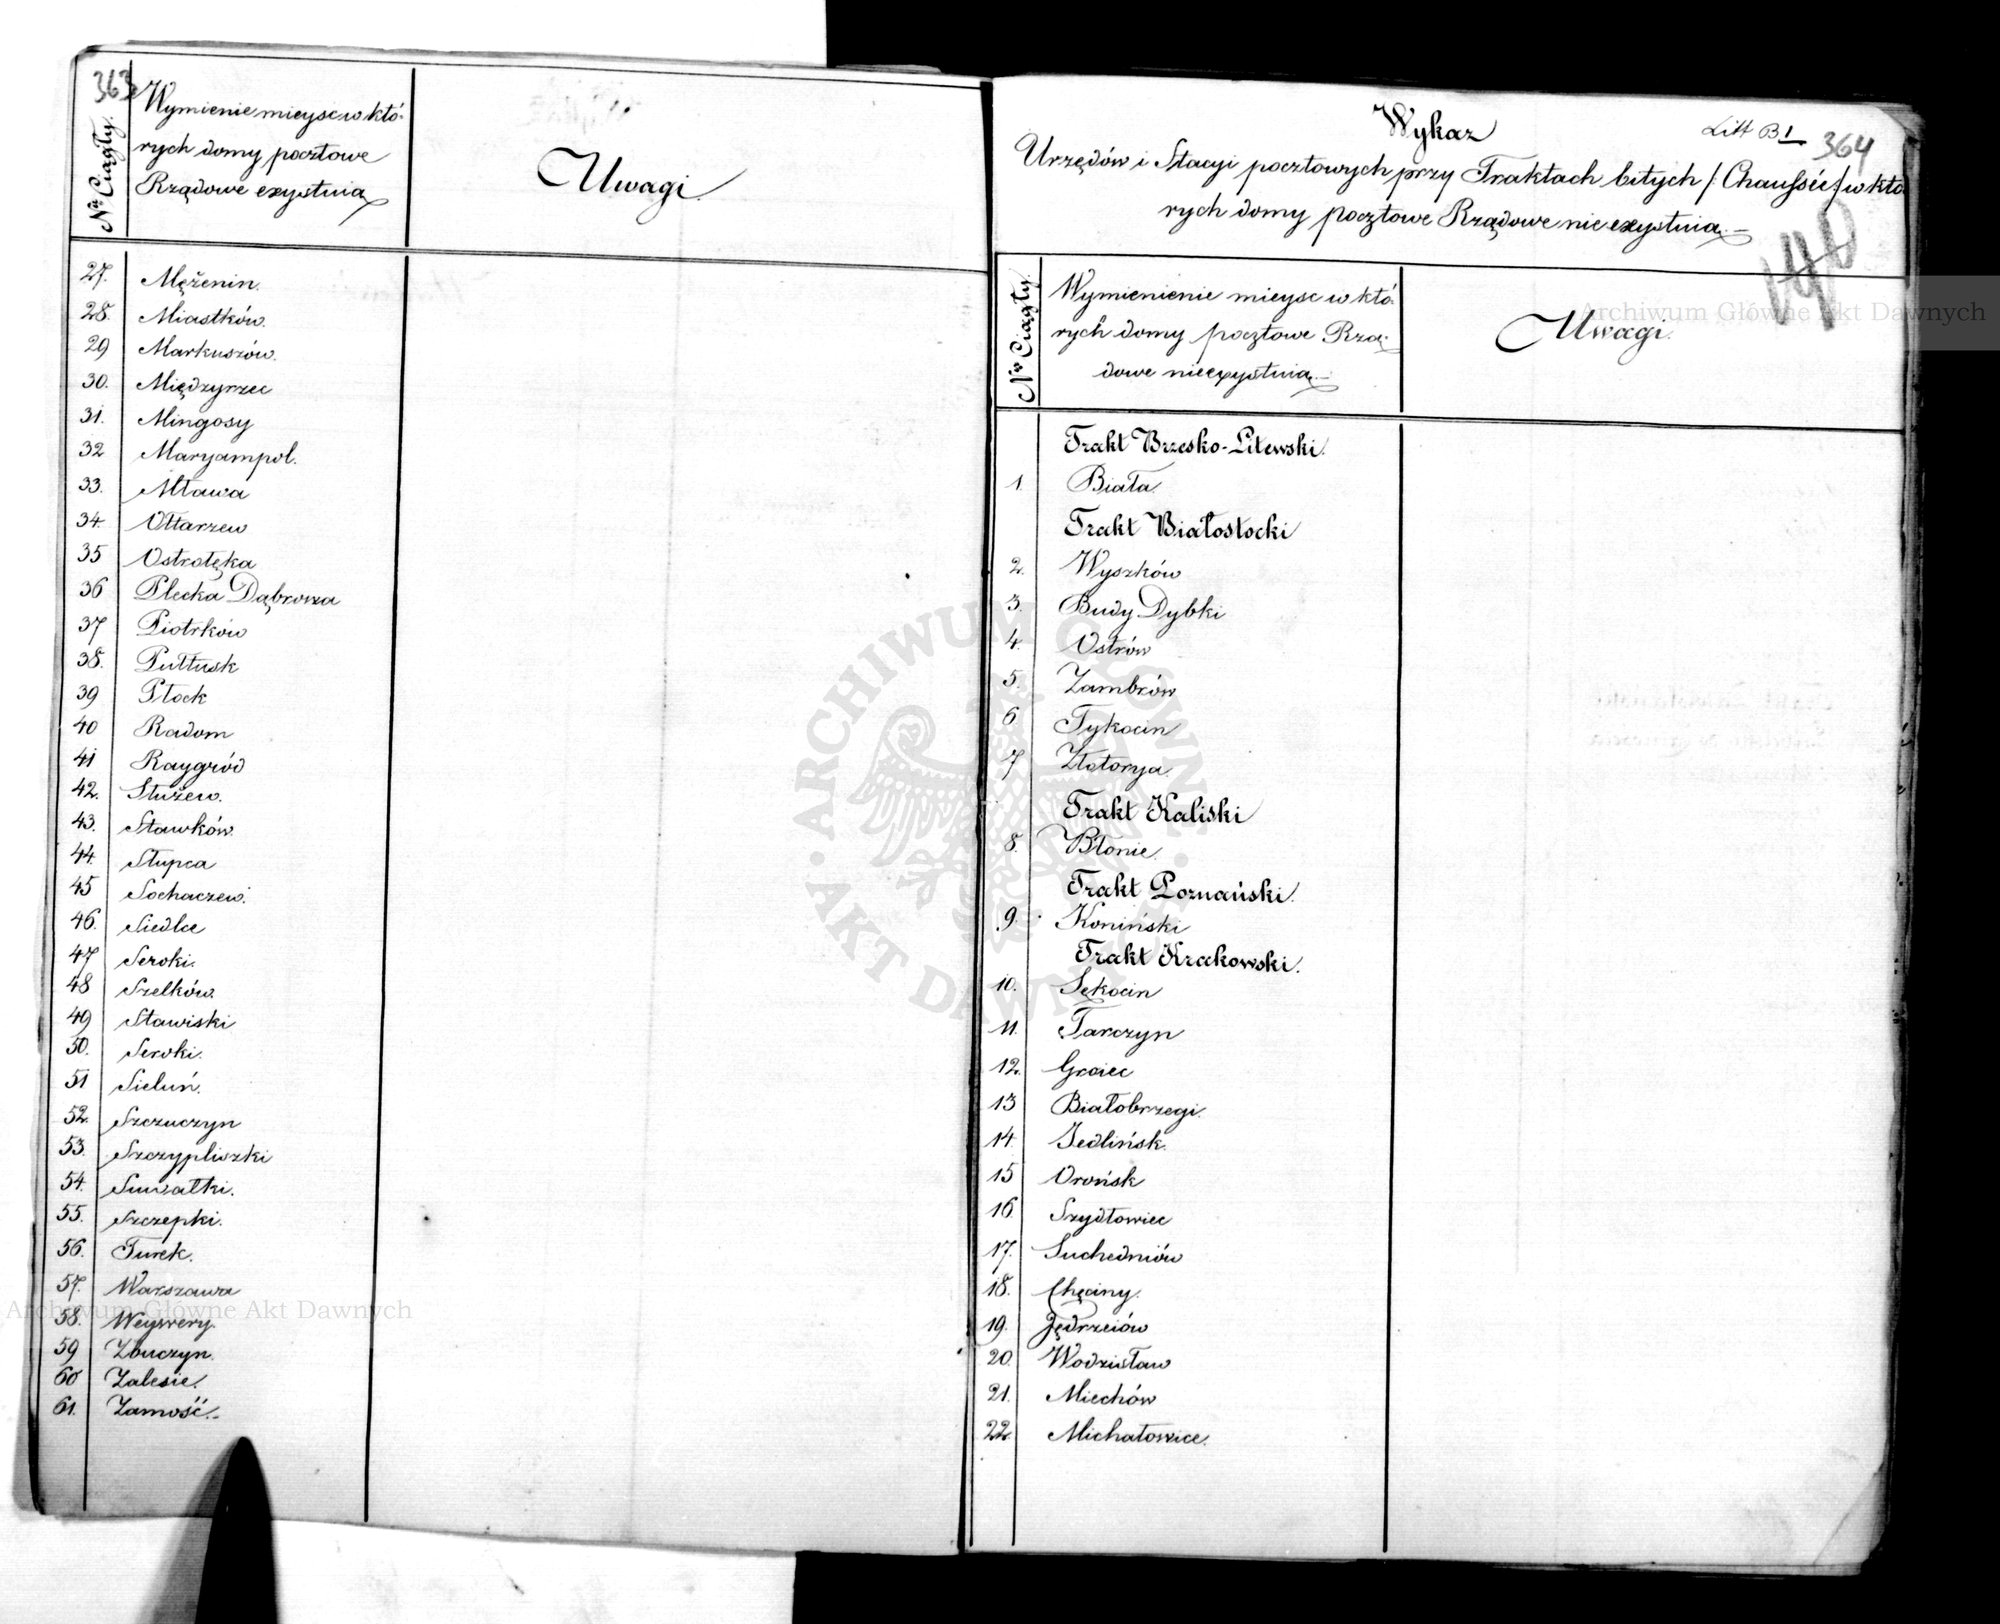 363
Nr Ciągły.
Wymienie mieysc w któ-
rych domy pocztowe
Rządowe exystuią
Uwagi
27. Mężenin.
28. Miastków.
29 Markuszów.
30. Międzyrzec
31. Mingosy
32 Maryampol.
33. Mława
34. Ołtarzew
35 Ostrołęka
36 Plecka Dąbrowa
37 Piotrków
38. Pułtusk
39 Płock
40 Radom
41 Raygród
42. Służew.
43. Sławków.
44. Słupca
45 Sochaczew.
46. Siedlce
47 Seroki.
48 Szelków.
49 Stawiski
50. Seroki.
51 Sieluń.
52. Szczuczyn
53. Szczypliszki
54. Suwałki.
55. Szczepki.
56. Turek.
57. Warszawa
58. Weywery.
59 Zbuczyn.
60 Zalesie.
61. Zamość.-
Litt B1
364
Wykaz
Urzędów i Stacyi pocztowych przy Traktach bitych /: Chaussée/ w któ
rych domy pocztowe Rządowe nie exystuią.-
140
Nr Ciągły.
Wymienienie mieysc w któ-
rych domy pocztowe Rzą-
dowe nieexystuią.-
Uwagi.
Trakt Brzesko-Litewski.
1. Biała.
Trakt Białostocki
2. Wyszków
3. Budy Dybki
4. Ostrów
5. Zambrów
6 Tykocin
7 Złotorya.
Trakt Kaliski
8. Błonie.
Trakt Poznański.
9. Koniński
Trakt Krakowski.
10. Sękocin
11. Tarczyn
12. Groiec
13 Białobrzegi.
14. Jedlińsk.
15 Orońsk
16 Szydłowiec
17. Suchedniów
18. Chęciny.
19. Jędrzeiów
20. Wodzisław
21. Miechów
22. Michałowice.
Archiwum Główne Akt Dawnych
Archiwum Główne Akt Dawnych
ARCHIWUM GŁÓWNE
AKT DAWNYCH